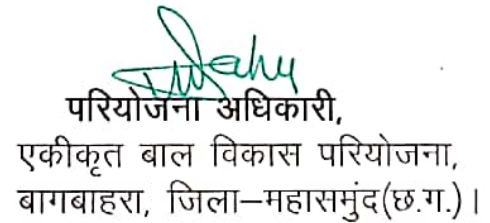 परियोजना अधिकारी,
एकीकृत बाल विकास परियोजना,
बागबाहरा, जिला–महासमुंद(छ.ग.)।